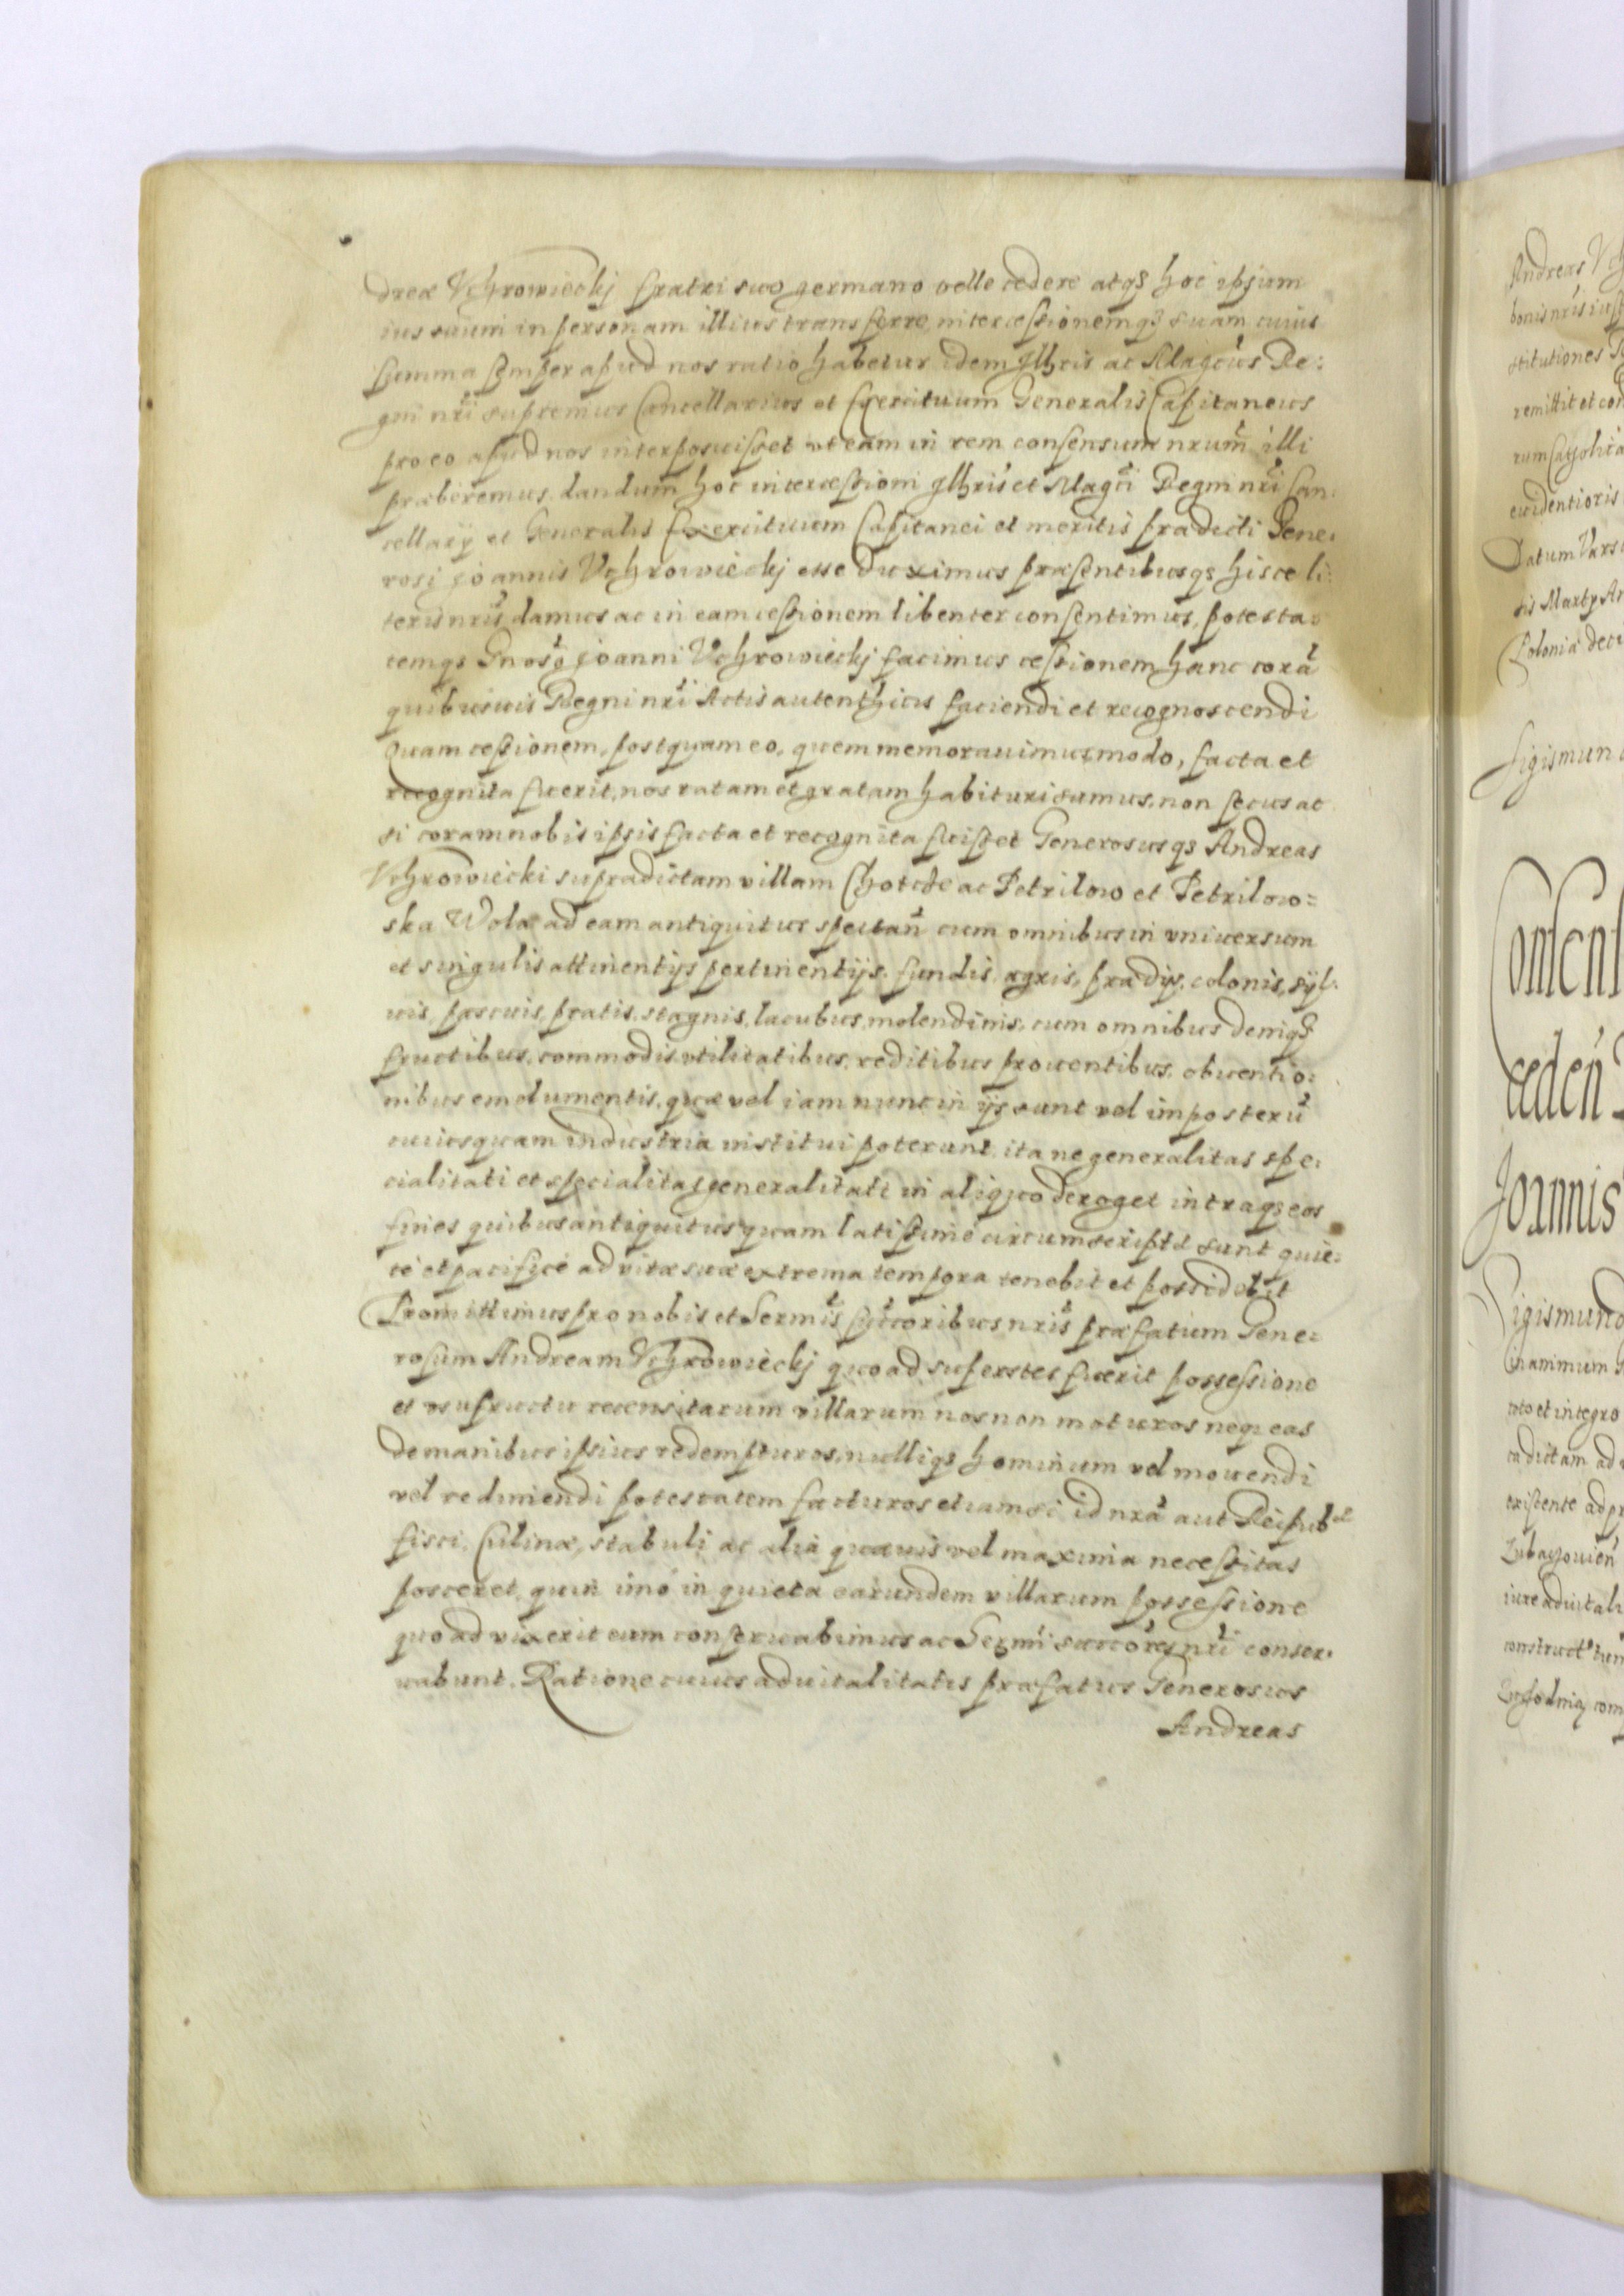 dreæ Vchrowieckj fratri suo germano velle cedere atqꝫ hoc ipsum
ius suum in personam illius transferre, intercessionemqꝫ suam cuius
summa semper apud nos ratio habetur idem Illtris ac Magcus Re:
gni nri supremus Cancellarius et Exercituum Generalis Capitaneus
pro eo apud nos interposuisset vt eam in rem consensum nrum illi
præberemus. dandum hoc intercessioni Illtris et Magci Regni nri Can:
cellarÿ et Generalis Exercituum Capitanei et meritis prædicti Gene:
rosi Joannis Vchrowieckj esse duximus præsentibusqꝫ hisce li:
teris nris damus ac in eam cessionem libenter consentimus, potesta:
temqꝫ Gnoso Joanni Vchrowieckj facimus cessionem hanc corã
quibusuis Regni nri Actis autenthicis faciendi et recognoscendi
Quam cessionem, postquam eo, quem memorauimus modo, facta et
recognita fuerit, nos ratam et gratam habituri sumus, non secus ac
si coram nobis ipsis facta et recognita fuisset Generosusqꝫ Andreas
Vchrowiecki supradictam villam Chotcze ac Petrilow et Petrilow=
ska Wola ad eam antiquitus spectañ cum omnibus in vniuersum
et singulis attinentijs pertinentijs. fundis, agris, prædijs, colonis, syl:
uis, pascuis, pratis, stagnis, lacubus, molendinis, cum omnibus deniqꝫ
fructibus, commodis vtilitatibus, reditibus prouentibus, obuentio:
nibus emolumentis, quæ vel iam nunc in ijs sunt vel imposterũ
cuiusquam industria institui poterunt, ita ne generalitas spe:
cialitati et specialitas generalitati in aliquo deroget intraqꝫ eos
fines quibus antiquitus quam latissimè circumscriptæ sunt quie:
tè et pacificè ad vitæ suæ extrema tempora tenebit et possidebit
Promittimus pro nobis et Sermis succoribus nris præfatum Gene:
rosum Andream Vchrowieckj quoad superstes fuerit possessione
et vsufructu recensitarum villarum nos non moturos neqꝫ eas
de manibus ipsius redempturos, nulliqꝫ hominum vel mouendi
vel redimendi potestatem facturos etiamsi id nrã aut Reipub
fisci, Culinæ, stabuli ac alia quæuis vel maxima necessitas
posceret, quin imò in quieta earundem villarum possessione
quoad vixerit eum conseruabimus ac Sermi succores nri conser:
uabunt. Ratione cuius aduitalitatis præfatus Generosus
Andreas
Andreas
bonis nris
stitutiones
remittit et con
rum
euidentioris
Datum
Sigismun
Consens
cedeñ
Joannis
Sigismund
toto et integro
existente
iure aduitali